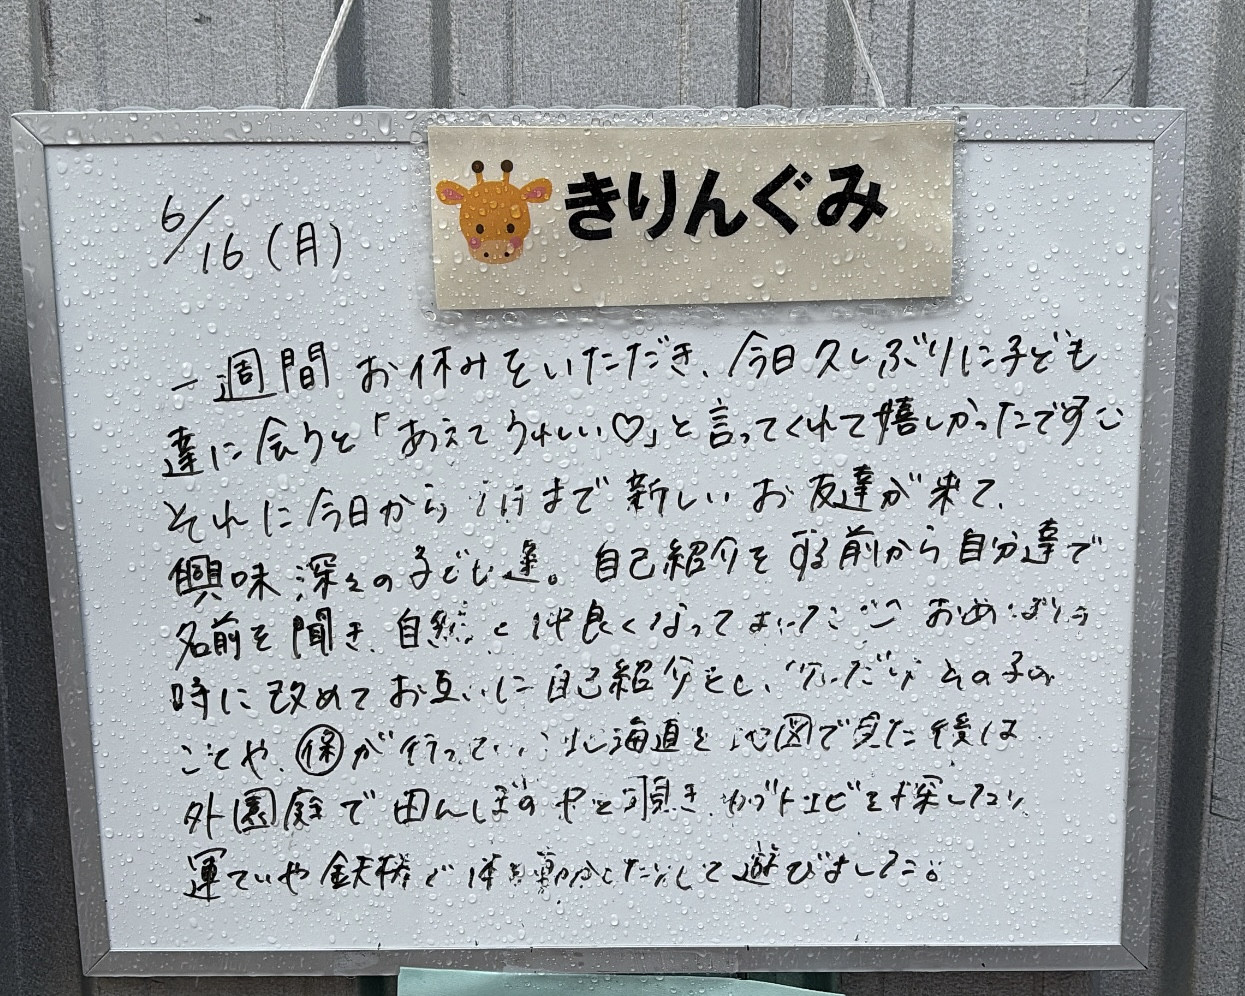 きりんぐみ
6/16(月)
一週間お休みをいただき、今日久しぶりに子ども
達に会うと「あえてうれしい♡」と言ってくれて嬉しかったです
それに今日から まで新しいお友達が来て、
興味深々の子ども達。自己紹介をする前から自分達で
名前を聞き、自然と仲良くなっていました
時に改めてお互いに自己紹介をし、 その子の
ことや、保が行って 北海道を地図で見た後は
外園庭で田んぼの を覗き、カブトエビを探したり
運ていや鉄棒で体を動かしたりして遊びました。